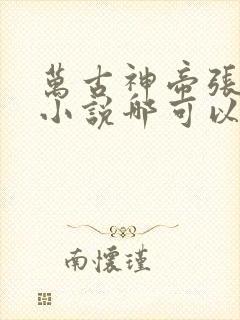 萬古神帝張
小說哪可以
南懷瑾